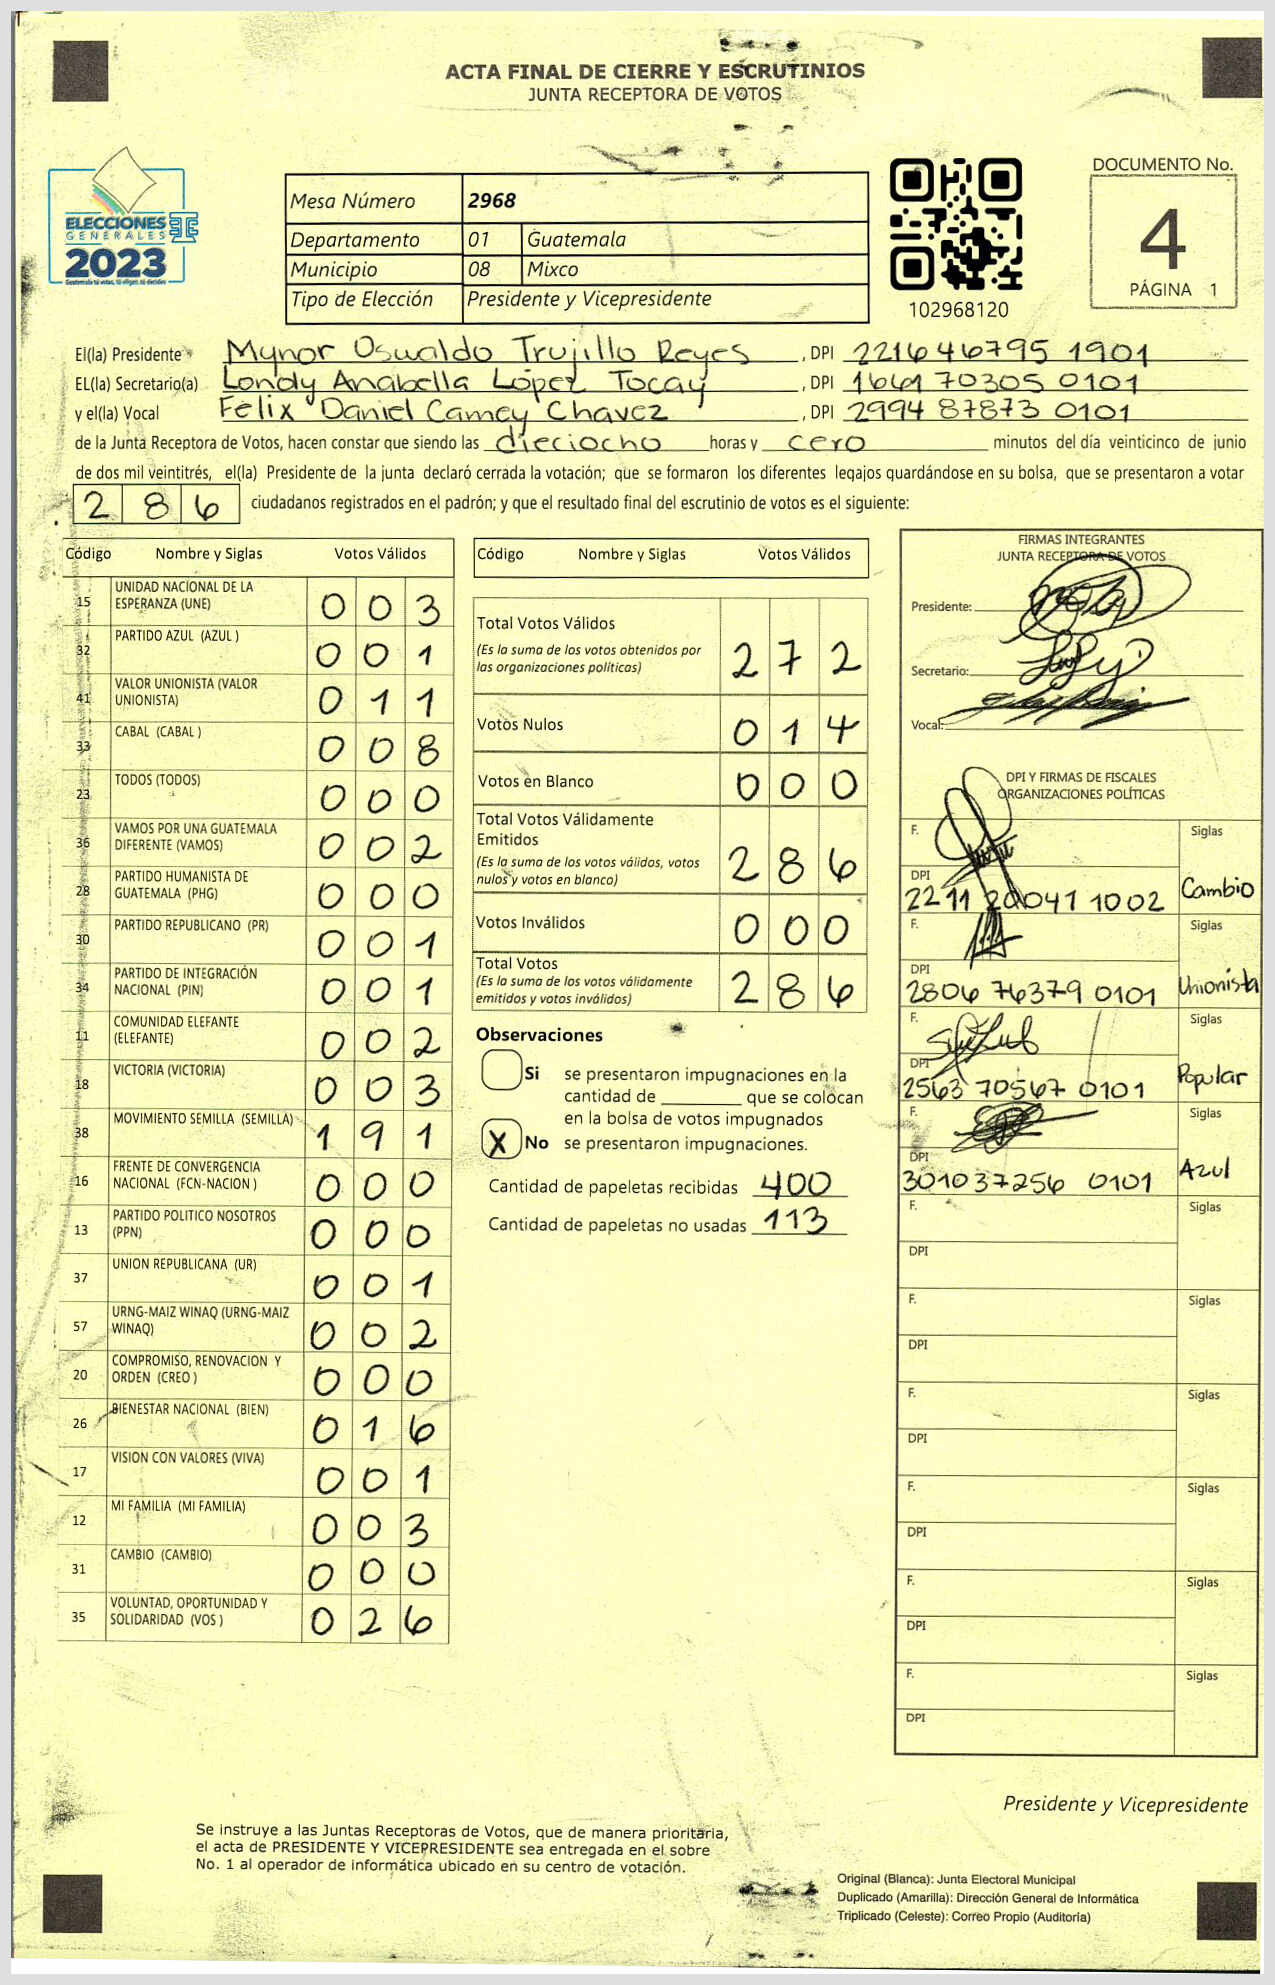 ACTA FINAL DE CIERRE Y ESCRUTINIOS
JUNTA RECEPTORA DE VOTOS
ELECCIONES
GENERALES
2023
Mesa Número 2968
Departamento 01 Guatemala
Municipio 08 Mixco
Tipo de Elección Presidente y Vicepresidente
102968120
DOCUMENTO No.
4
PÁGINA 1
El(la) Presidente Mynor Oswaldo Trujillo Reyes, DPI 2216 46795 1901
EL(la) Secretario(a) Londy Anabella López Tocay, DPI 1661 70305 0101
y el(la) Vocal Félix Daniel Camey Chavez, DPI 2994 87873 0101
de la Junta Receptora de Votos, hacen constar que siendo las dieciocho horas y cero minutos del día veinticinco de junio
de dos mil veintitrés, el(la) Presidente de la junta declaró cerrada la votación; que se formaron los diferentes legajos guardándose en su bolsa, que se presentaron a votar
286 ciudadanos registrados en el padrón; y que el resultado final del escrutinio de votos es el siguiente:
Código Nombre y Siglas Votos Válidos
15 UNIDAD NACIONAL DE LA ESPERANZA (UNE) 003
32 PARTIDO AZUL (AZUL ) 001
41 VALOR UNIONISTA (VALOR UNIONISTA) 011
33 CABAL (CABAL ) 008
23 TODOS (TODOS) 000
36 VAMOS POR UNA GUATEMALA DIFERENTE (VAMOS) 002
28 PARTIDO HUMANISTA DE GUATEMALA (PHG) 000
30 PARTIDO REPUBLICANO (PR) 001
34 PARTIDO DE INTEGRACIÓN NACIONAL (PIN) 001
11 COMUNIDAD ELEFANTE (ELEFANTE) 002
18 VICTORIA (VICTORIA) 003
38 MOVIMIENTO SEMILLA (SEMILLA) 191
16 FRENTE DE CONVERGENCIA NACIONAL (FCN-NACION ) 000
13 PARTIDO POLITICO NOSOTROS (PPN) 000
37 UNION REPUBLICANA (UR) 001
57 URNG-MAIZ WINAQ (URNG-MAIZ WINAQ) 002
20 COMPROMISO, RENOVACION Y ORDEN (CREO ) 000
26 BIENESTAR NACIONAL (BIEN) 016
17 VISION CON VALORES (VIVA) 001
12 MI FAMILIA (MI FAMILIA) 003
31 CAMBIO (CAMBIO) 000
35 VOLUNTAD, OPORTUNIDAD Y SOLIDARIDAD (VOS ) 026
Código Nombre y Siglas Votos Válidos
Total Votos Válidos 272
(Es la suma de los votos obtenidos por
las organizaciones políticas)
Votos Nulos 014
Votos en Blanco 000
Total Votos Válidamente
Emitidos 286
(Es la suma de los votos válidos, votos
nulos y votos en blanco)
Votos Inválidos 000
Total Votos 286
(Es la suma de los votos válidamente
emitidos y votos inválidos)
Observaciones
Si se presentaron impugnaciones en la
cantidad de ________ que se colocan
en la bolsa de votos impugnados
X No se presentaron impugnaciones.
Cantidad de papeletas recibidas 400
Cantidad de papeletas no usadas 113
FIRMAS INTEGRANTES
JUNTA RECEPTORA DE VOTOS
Presidente:
Secretario:
Vocal:
DPI Y FIRMAS DE FISCALES
ORGANIZACIONES POLÍTICAS
F. Siglas
DPI 2211 20041 1002 Cambio
F. Siglas
DPI 2806 76379 0101 Unionista
F. Siglas
DPI 2563 70567 0101 Popular
F. Siglas
DPI 301037256 0101 Azul
F. Siglas
DPI
F. Siglas
DPI
F. Siglas
DPI
F. Siglas
DPI
F. Siglas
DPI
F. Siglas
DPI
Presidente y Vicepresidente
Se instruye a las Juntas Receptoras de Votos, que de manera prioritaria,
el acta de PRESIDENTE Y VICEPRESIDENTE sea entregada en el sobre
No. 1 al operador de informática ubicado en su centro de votación.
Original (Blanca): Junta Electoral Municipal
Duplicado (Amarilla): Dirección General de Informática
Triplicado (Celeste): Correo Propio (Auditoría)